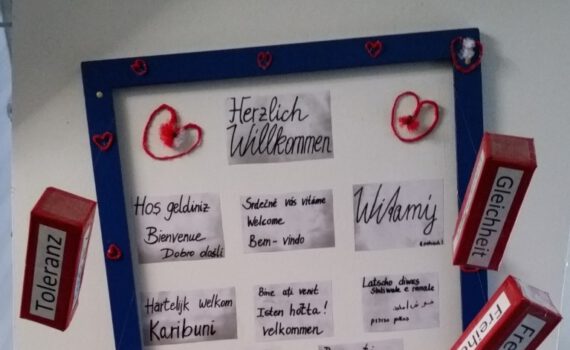 Herzlich
Willkommen
Hos geldiniz
Bienvenue
Dobro došli
Srdečně vás vítáme
Welcome
Bem-vindo
Witamy
Hartelijk welkom
Karibuni
Bine ați venit
Isten hozta!
velkommen
Latscho diwes
Toleranz
Gleichheit
Freihe
Fre